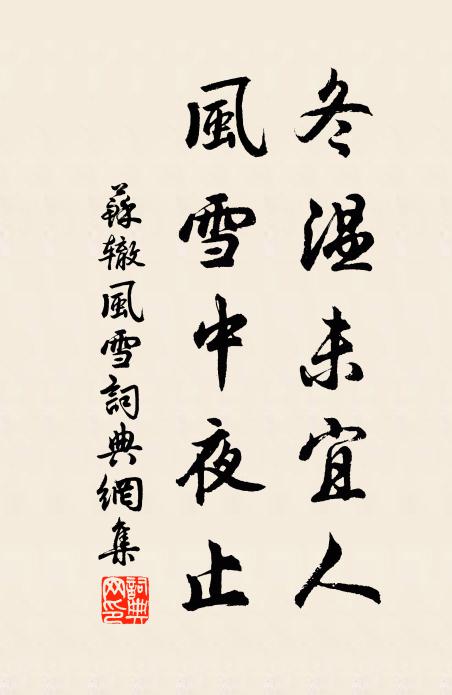 冬温未宜人
風雪中夜止
蘇辙風雪詞典網集
詞典网印